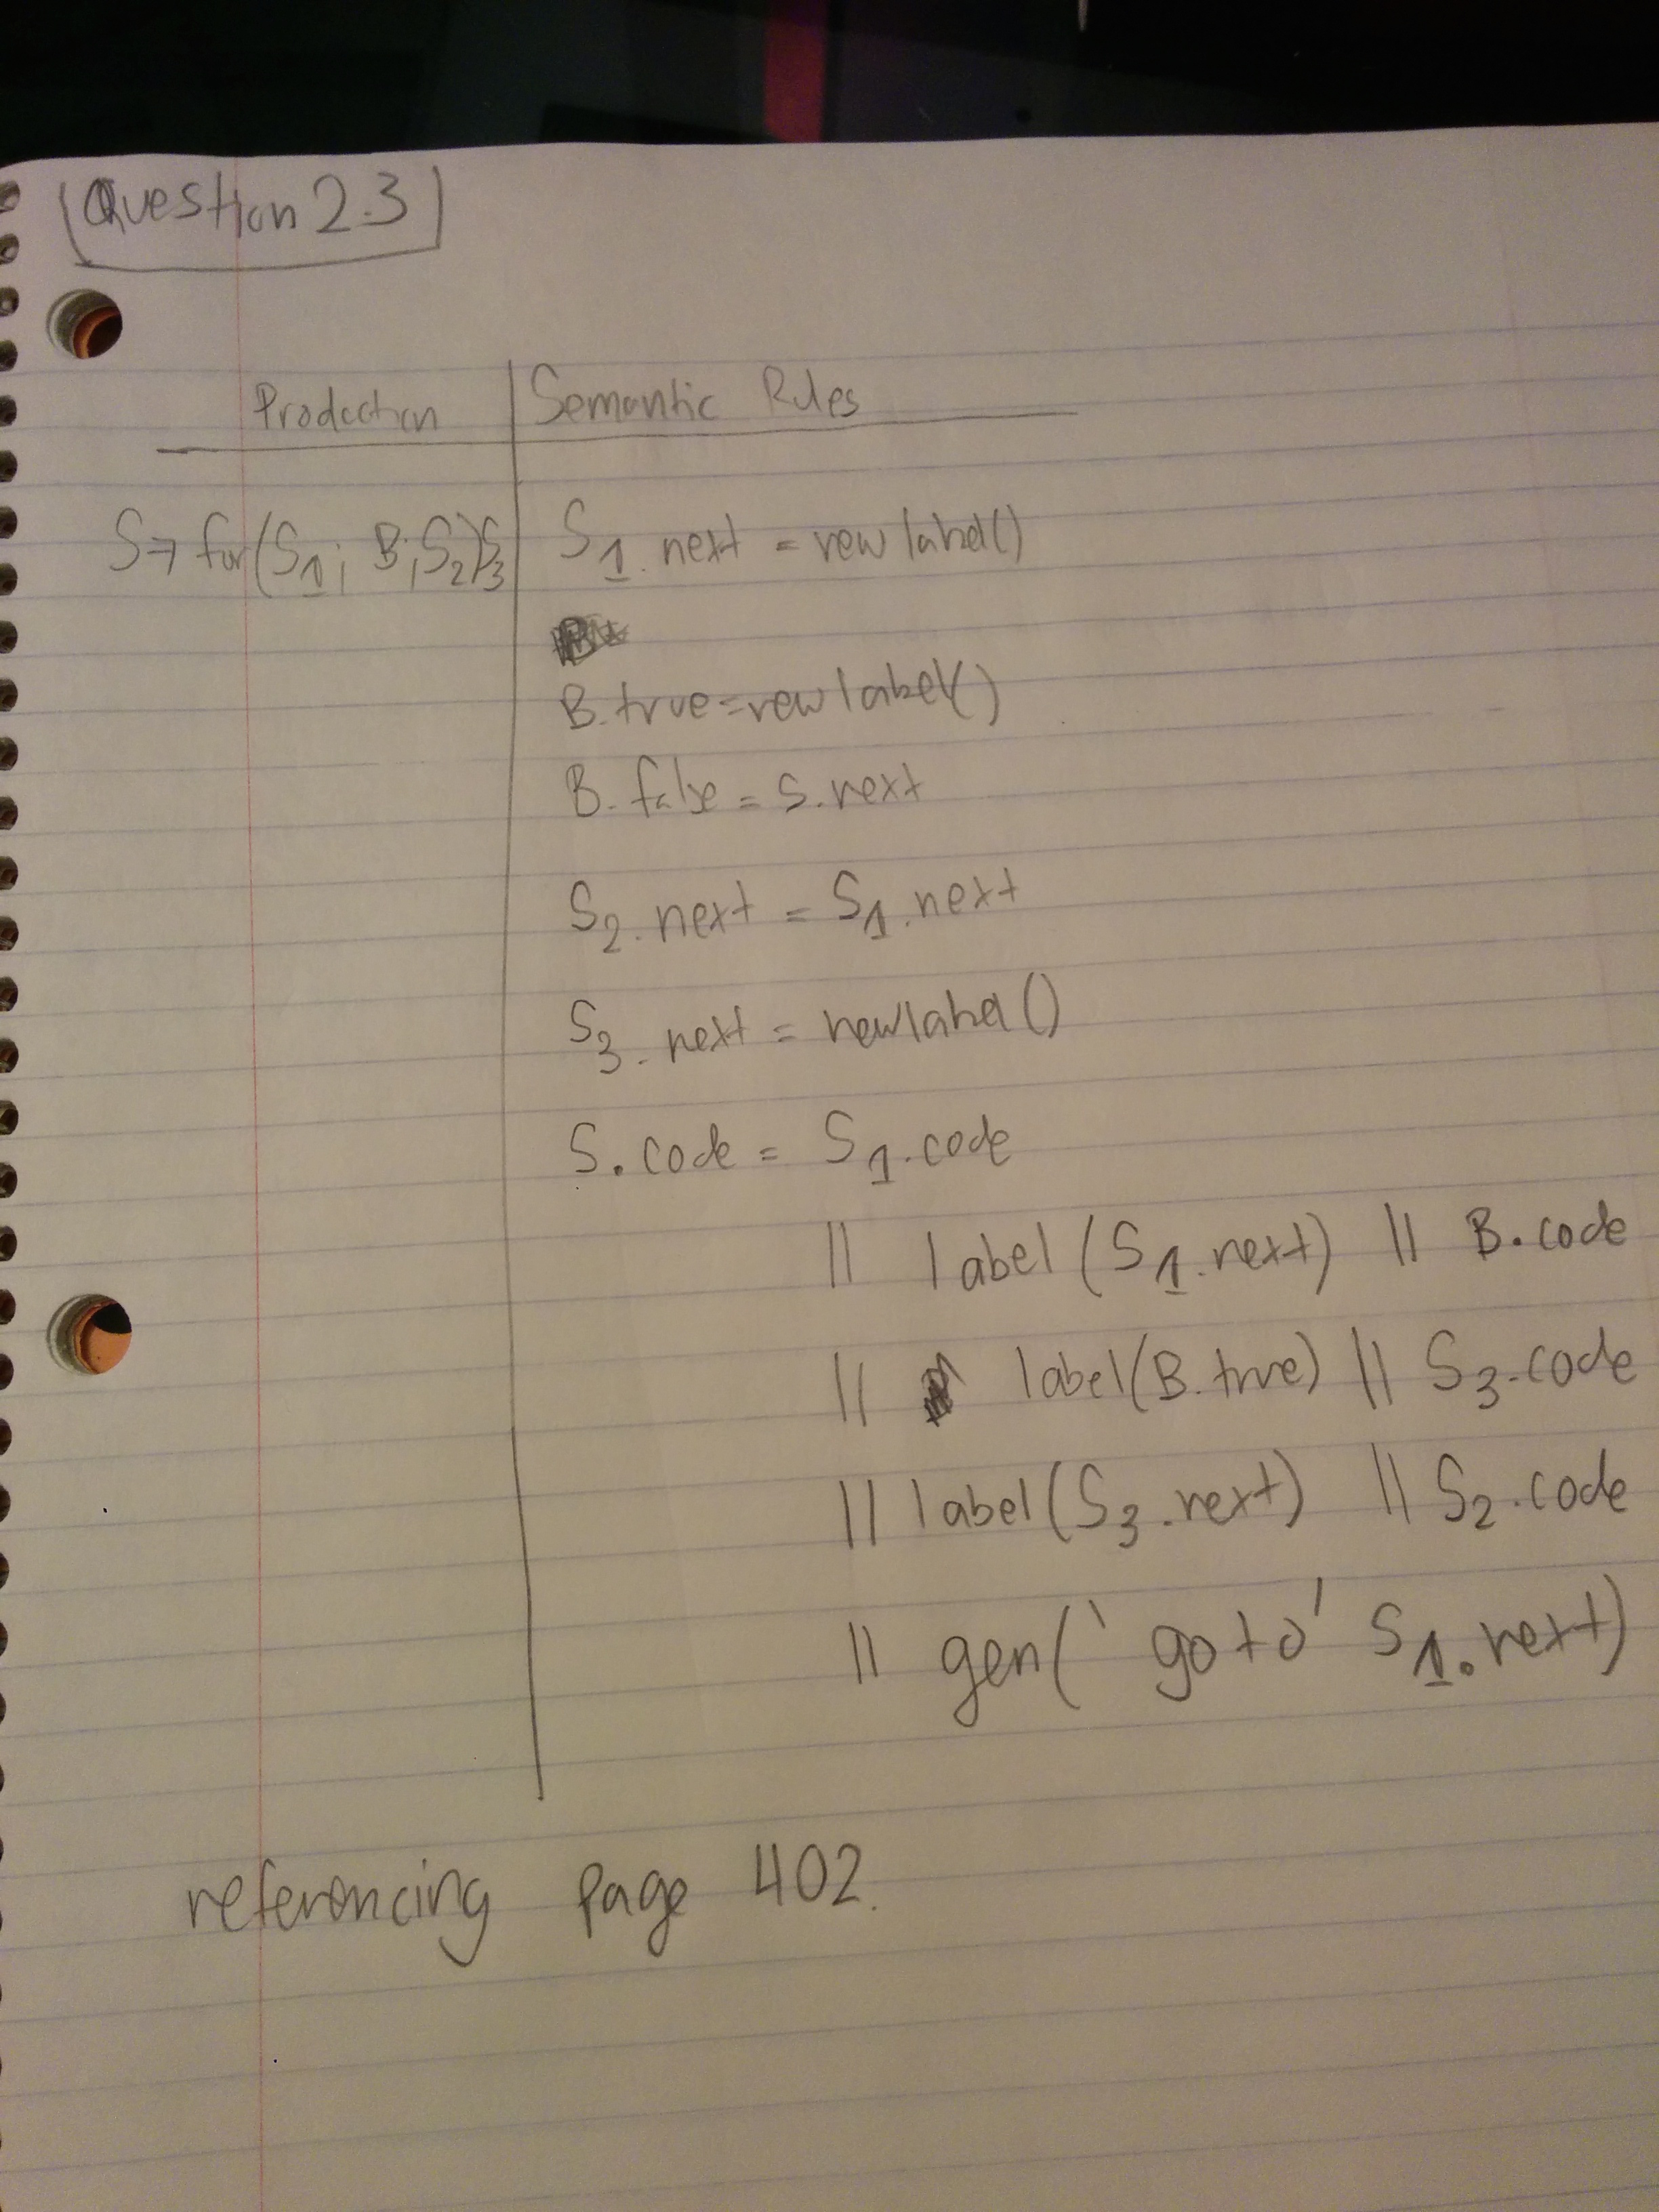 Question 2.3
Production Semantic Rules
S → for(S1; B; S2)S3 S1.next = newlabel()
B.true=newlabel()
B.false = S.next
S2.next = S1.next
S3.next = newlabel()
S.code = S1.code
|| label(S1.next) || B.code
|| label(B.true) || S3.code
|| label(S3.next) || S2.code
|| gen('goto' S1.next)
referencing page 402.